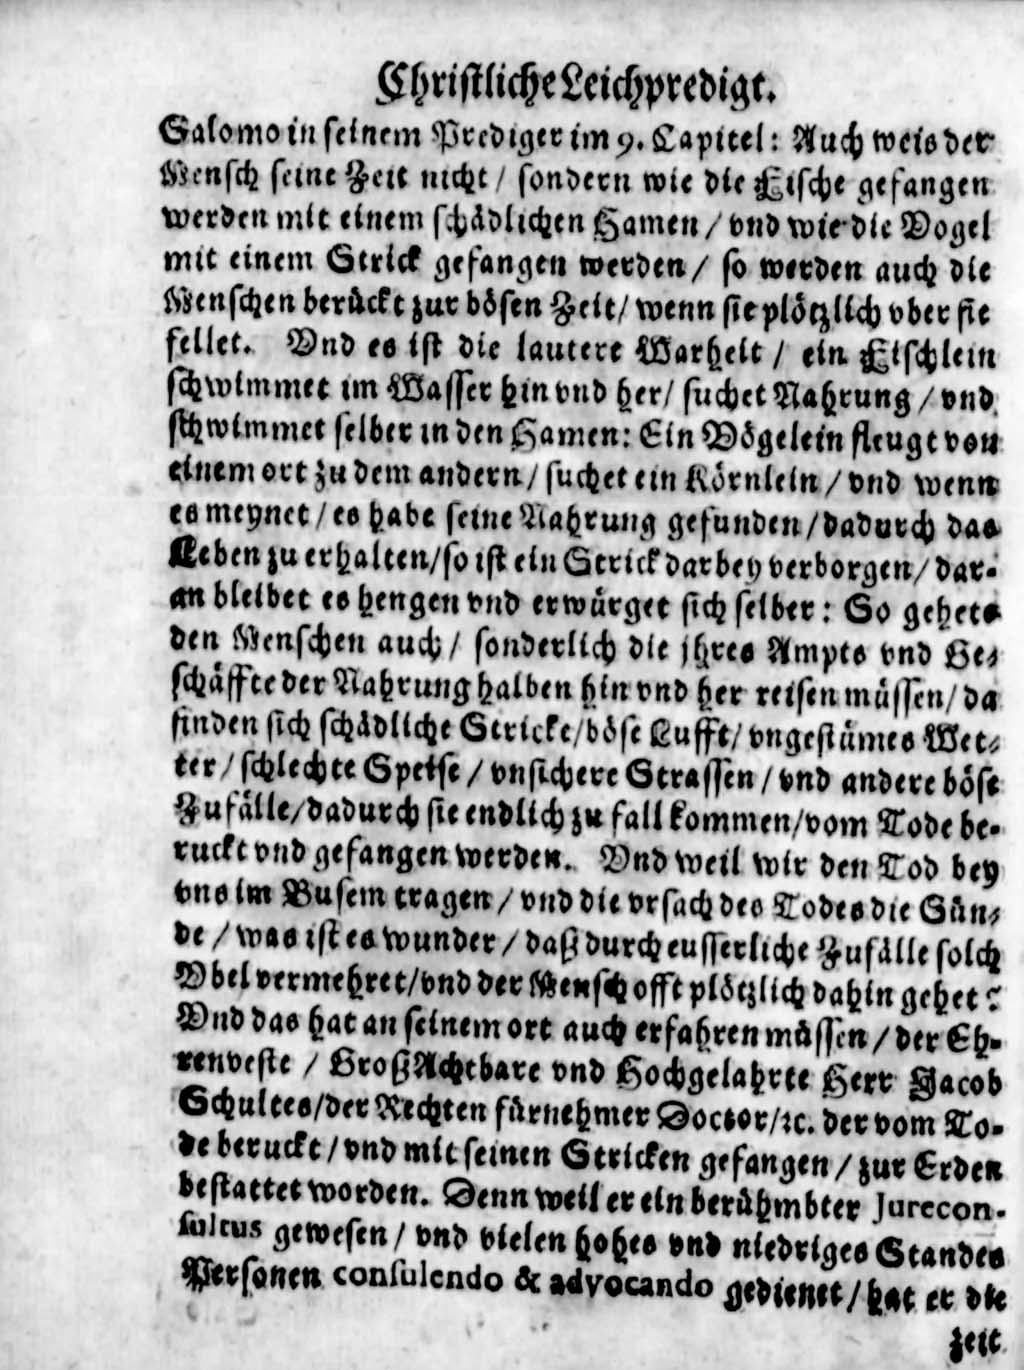 Christliche Leichpredigt.
Salomo in seinem Prediger im 9. Capitel: Auch weis der
Mensch seine Zeit nicht / sondern wie die Fische gefangen
werden mit einem schädlichen Hamen / vnd wie die Vogel
mit einem Strick gefangen werden / so werden auch die
Menschen berückt zur bösen Zeit / wenn sie plötzlich vber sie
fellet. Vnd es ist die lautere Warheit / ein Fischlein
schwimmet im Wasser hin vnd her / suchet Nahrung / vnd
schwimmet selber in den Hamen: Ein Vögelein fleugt von
einem ort zu dem andern / suchet ein Körnlein / vnd wenn
es meynet / es habe seine Nahrung gefunden / dadurch das
Leben zu erhalten / so ist ein Strick darbey verborgen / dar-
an bleibet es hengen vnd erwürget sich selber: So gehets
den Menschen auch / sonderlich die jhres Ampts vnd Ge-
schäffte der Nahrung halben hin vnd her reisen müssen / da
finden sich schädliche Stricke / böse Lufft / vngestümes Wet-
ter / schlechte Speise / vnsichere Strassen / vnd andere böse
Zufälle / dadurch sie endlich zu fall kommen / vom Tode be-
ruckt vnd gefangen werden. Vnd weil wir den Tod bey
vns im Busem tragen / vnd die vrsach des Todes die Sün-
de / was ist es wunder / daß durch eusserliche Zufälle solch
Vbel vermehret / vnd der Mensch offt plötzlich dahin gehet?
Vnd das hat an seinem ort auch erfahren müssen / der Eh-
renveste / GroßAchtbare vnd Hochgelahrte Herr Jacob
Schultes / der Rechten fürnehmer Doctor / ꝛc. der vom To-
de beruckt / vnd mit seinen Stricken gefangen / zur Erden
bestattet worden. Denn weil er ein berühmbter Jurecon-
sultus gewesen / vnd vielen hohes vnd niedriges Standes
Personen consulendo & advocando gedienet / hat er die
zeit